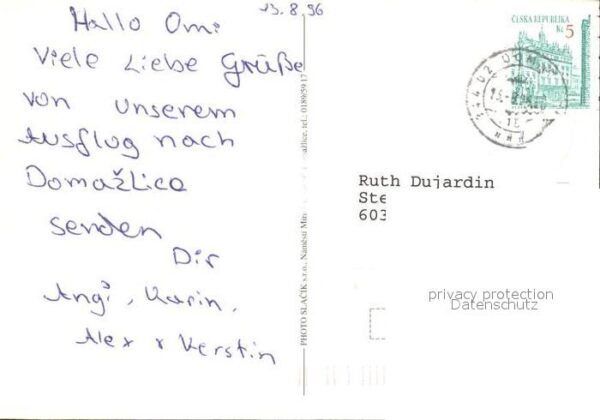 13.8.96
Hallo Omi
Viele Liebe Grüße
von unserem
Ausflug nach
Domažlice
senden
Dir
Angi, Karin,
Alex + Kerstin
PHOTO SLAČIK s.r.o., Náměstí Míru
tel.: 0189/59 17
ČESKÁ REPUBLIKA
Kč 5
344 02 DOM
Ruth Dujardin
Ste
603
privacy protection
Datenschutz